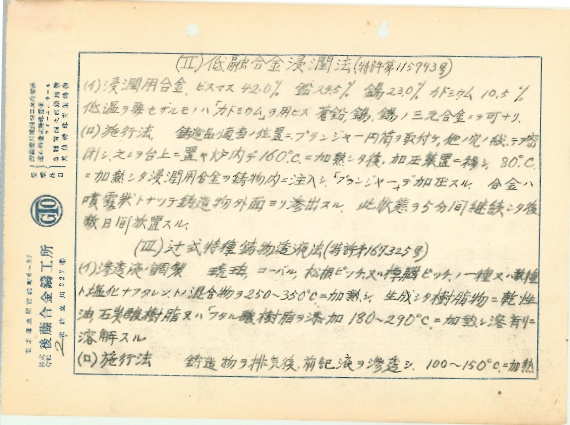 (II) 低融合金浸潤法(特許第115793号)
(イ)浸潤用合金、ビスマス 42.0% 鉛 24.5% 錫 23.0% カドミウム 10.5%
低温ヲ要セザルモノハ「カドミウム」ヲ用ヒズ蒼鉛、錫ノ三元合金ヲ可ナリ
(ロ)施行法 鋳造品適当ノ位置ニプランジャー円筒ヲ取付ケ、他ノ穴ハ総テ密
閉シ、之レヲ台上ニ置キ炉内デ160℃ニ加熱シタ後、加圧装置ニ移シ、80℃
ニ加熱シタ浸潤用合金ヲ鋳物内ニ注入シ「プランジャー」デ加圧スル。合金ハ
噴霧状トナツテ鋳造物外面ヨリ滲出スル。此状態ヲ5分間継続シタ後
数日間放置スル。
(III) 辻式特種鋳物透液法(特許第167325号)
(イ)滲透液ノ調製 琥珀、コーパル、松根ピッチ又ハ ピッチノ一種又ハ数種
ト塩化ナフタレントノ混合物ヲ250〜350℃ニ加熱シ、生成シタ樹脂物ニ乾性
油石炭酸樹脂又ハフタル酸樹脂ヲ添加180〜290℃ニ加熱シ溶剤ニ
溶解スル
(ロ)施行法 鋳造物ヲ排気後、前記液ヲ滲透シ、100〜150℃ニ加熱
GTO
株式会社 後藤合金鋳工所